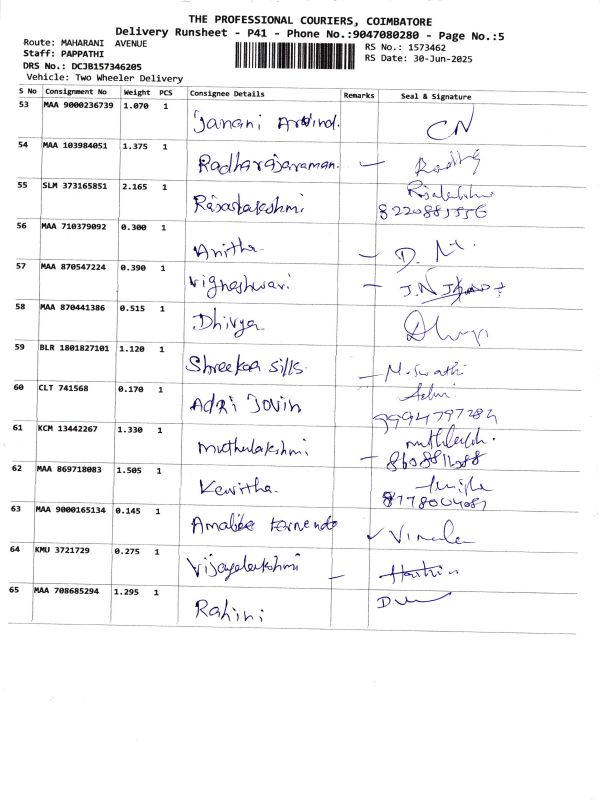 THE PROFESSIONAL COURIERS, COIMBATORE
Delivery Runsheet - P41 - Phone No.:9047080280 - Page No.:5
Route: MAHARANI AVENUE
RS No.: 1573462
Staff: PAPPATHI
RS Date: 30-Jun-2025
DRS No.: DCJB157346205
Vehicle: Two Wheeler Delivery
S No Consignment No Weight PCS Consignee Details Remarks Seal & Signature
53 MAA 9000236739 1.070 1 Janani Arvind. CN
54 MAA 103984051 1.375 1 Radharajaraman. —
55 SLM 373165851 2.165 1 Rajastakshmi
56 MAA 710379092 0.300 1 Anitha — D. M.
57 MAA 870547224 0.390 1 Vigneshwari — J.N
58 MAA 870441386 0.515 1 Dhivya
59 BLR 1801827101 1.120 1 Shreekaa sills — M. Swathi
60 CLT 741568 0.170 1 ADRI Jovin
9994797284
61 KCM 13442267 1.330 1 Muthulakshmi —
62 MAA 869718083 1.505 1 Kavitha.
63 MAA 9000165134 0.145 1 ✓ Vimala
64 KMU 3721729 0.275 1 Vijayalakshmi —
65 MAA 708685294 1.295 1 Rahini